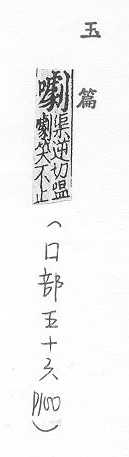 玉篇
噱
渠逆切嗢
噱笑不止
(口部五十六 P100)